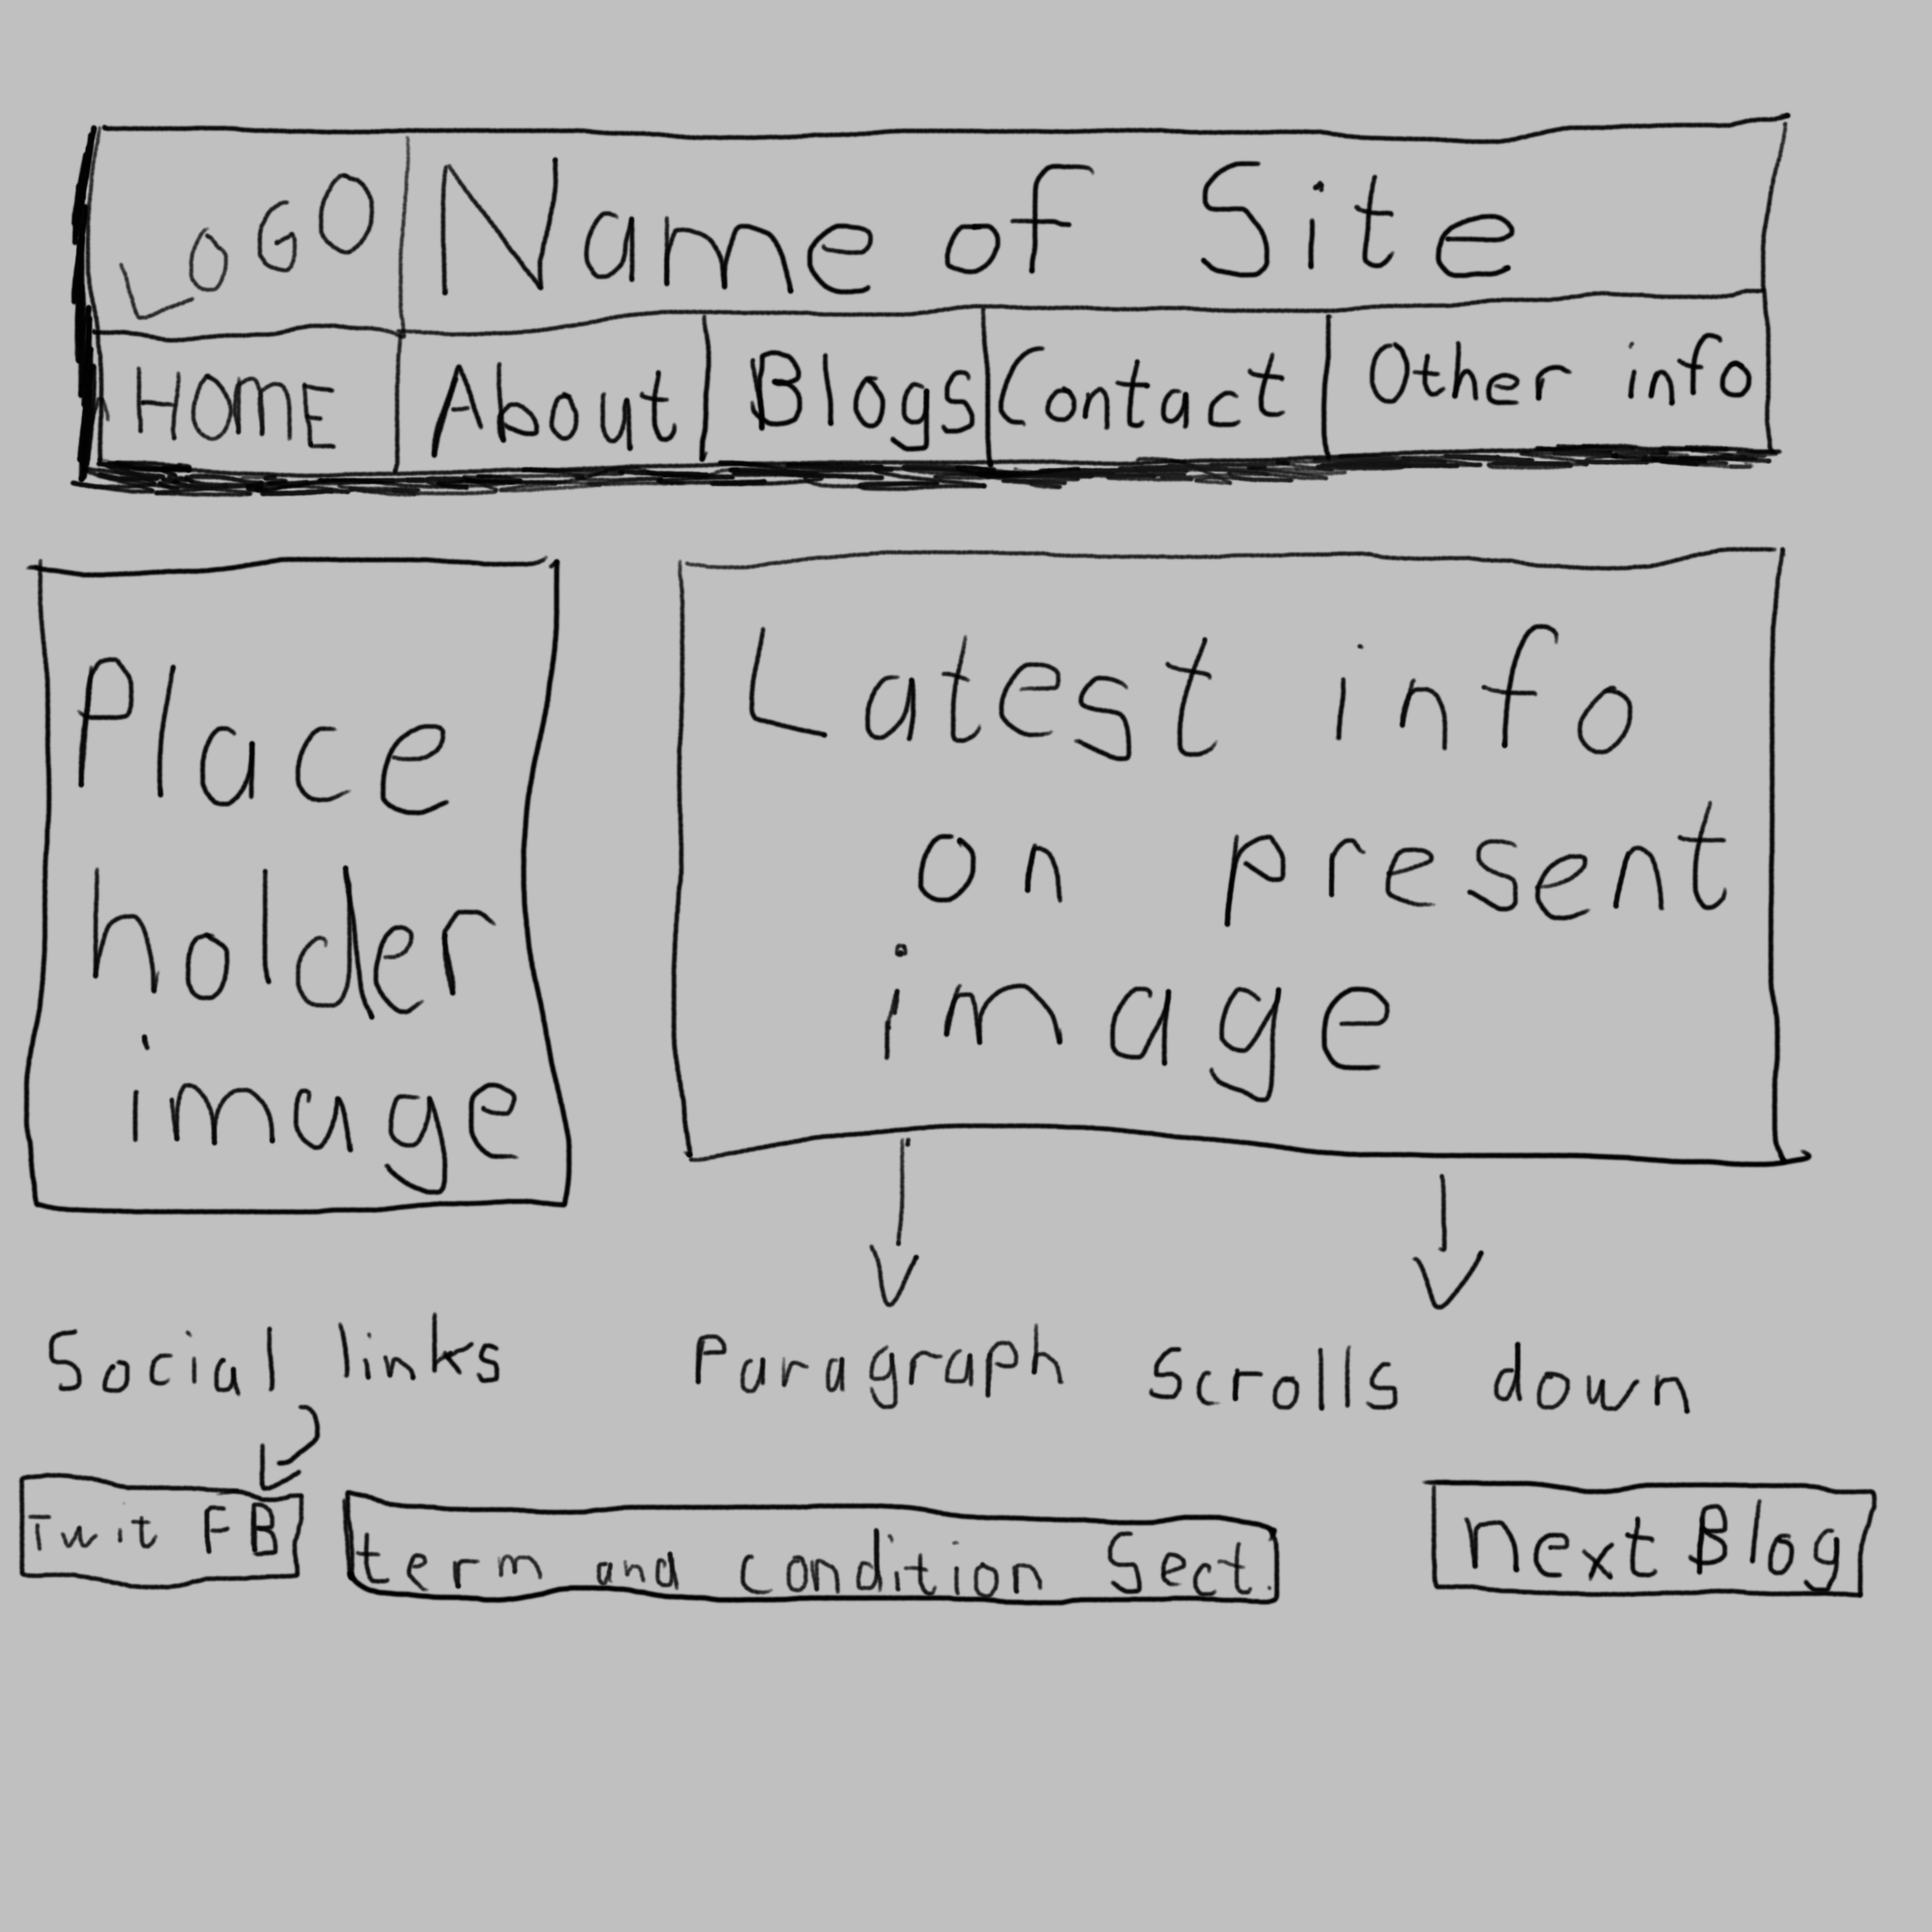 LOGO
Name of Site
HOME
About
Blogs
Contact
Other info
Place
holder
image
Latest info
on present
image
Social links
Paragraph Scrolls down
Twit FB
term and condition Sect.
next Blog